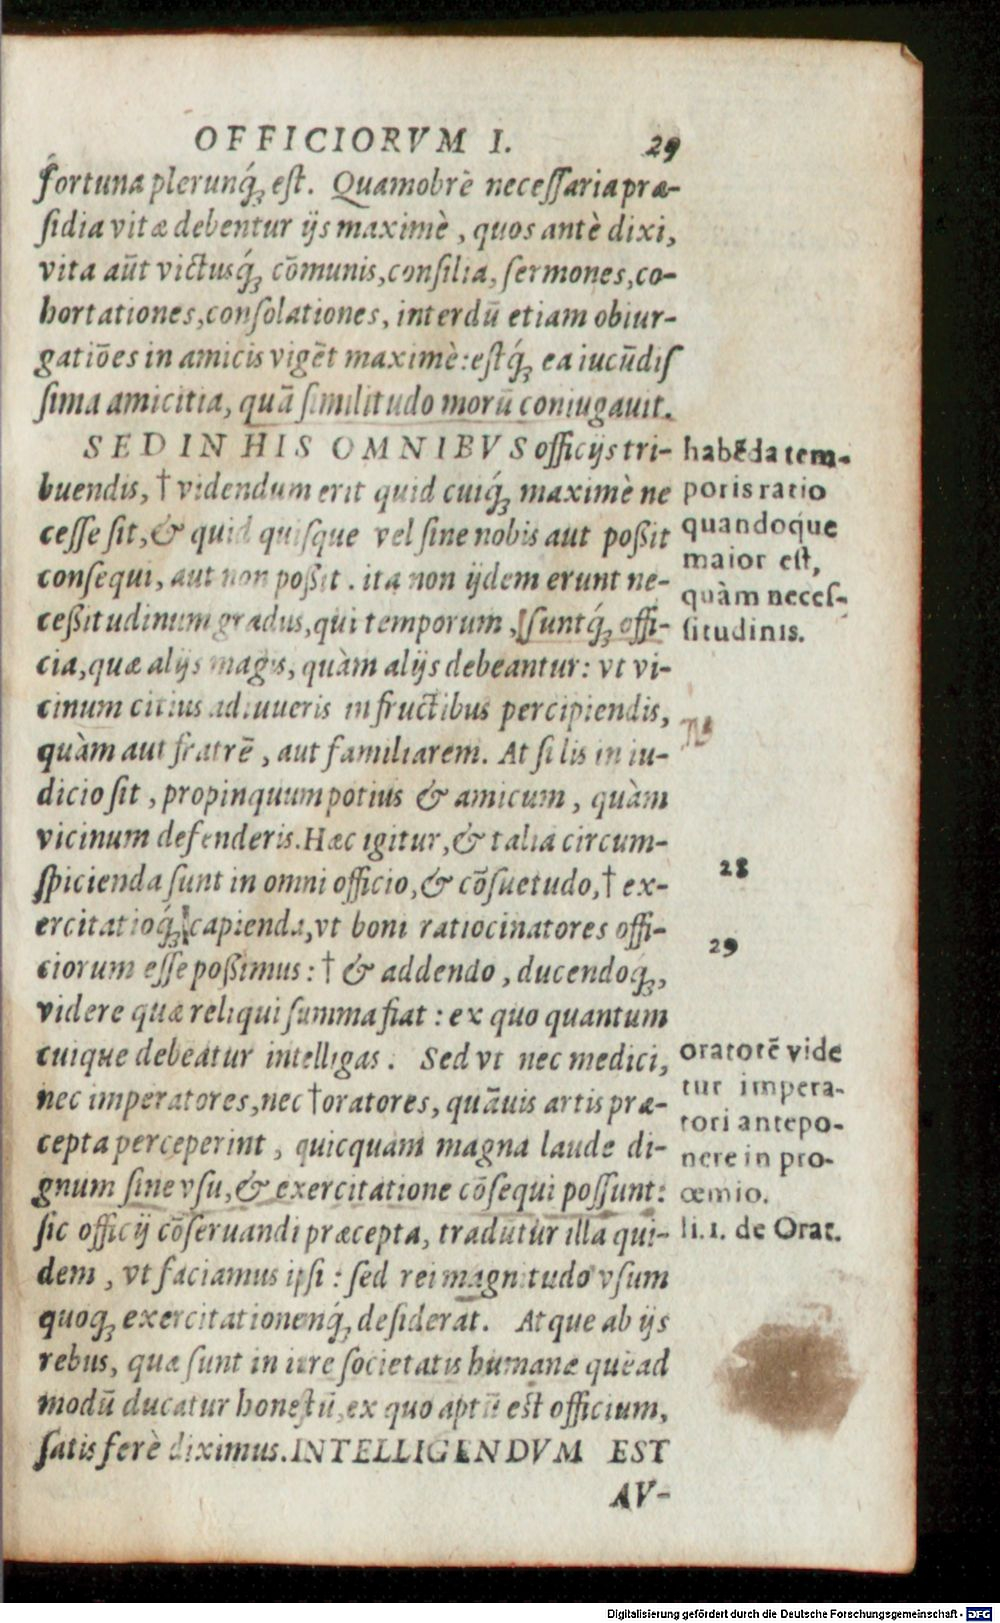 OFFICIORVM I. 29
fortuna plerunq́ꝫ est. Quamobrē necessaria præ-
sidia vitæ debentur ijs maximè, quos antè dixi,
vita aūt victusq́ꝫ cōmunis, consilia, sermones, co-
hortationes, consolationes, interdū etiam obiur-
gatiōes in amicis vigēt maximè: estq́ꝫ ea iucūdis
sima amicitia, quā similitudo morū coniugauit.
SED IN HIS OMNIBVS officijs tri-
buendis, † videndum erit quid cuiq́ꝫ maximè ne
cesse sit, & quid quisque vel sine nobis aut poßit
consequi, aut non poßit. ita non ijdem erunt ne-
ceßitudinum gradus, qui temporum, suntq́ꝫ offi-
cia, quæ alijs magis, quàm alijs debeantur: vt vi-
cinum citius adiuueris in fructibus percipiendis,
quàm aut fratrē, aut familiarem. At si lis in iu-
dicio sit, propinquum potius & amicum, quàm
vicinum defenderis. Hæc igitur, & talia circum-
spicienda sunt in omni officio, & cōsuetudo, † ex-
ercitatioq́ꝫ capienda, vt boni ratiocinatores offi-
ciorum esse poßimus: † & addendo, ducendoq́ꝫ,
videre quæ reliqui summa fiat: ex quo quantum
cuique debeatur intelligas. Sed vt nec medici,
nec imperatores, nec †oratores, quāuis artis præ-
cepta perceperint, quicquam magna laude di-
gnum sine vsu, & exercitatione cōsequi possunt:
sic officij cōseruandi præcepta, tradūtur illa qui-
dem, vt faciamus ipsi: sed rei magnitudo vsum
quoqꝫ exercitationemq́ꝫ desiderat. Atque ab ijs
rebus, quæ sunt in iure societatis humanæ quēad
modū ducatur honestū, ex quo aptū est officium,
satis ferè diximus. INTELLIGENDVM EST
AV-
habēda tem-
poris ratio
quandoque
maior est,
quàm neces-
situdinis.
28
29
oratorē vide
tur impera-
tori antepo-
nere in pro-
œmio.
li. 1. de Orat.
Digitalisierung gefördert durch die Deutsche Forschungsgemeinschaft - DFG